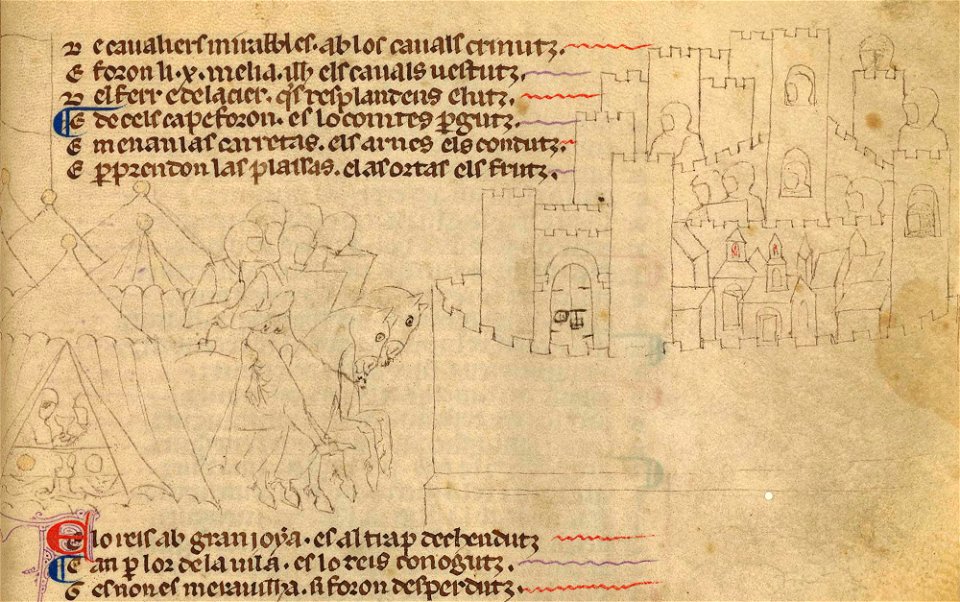 D e caualiers mirables. ab los cauals crinutz.
E foron li .x. melia. ilh els cauals uestutz.
D el ferr e delacier. q̃s resplandens e lutz.
E de cels cap e foron. es lo comtes ꝑgutz.
E menan las carretas. els arnes els condutz.
E ꝑprendon las plassas. e las ortas els frutz.
E lo reis ab gran joya. es al trap dechendutz
E an ꝑ lor de la uila. es lo reis conogutz.
G es non es merauilha. si foron desperdutz.